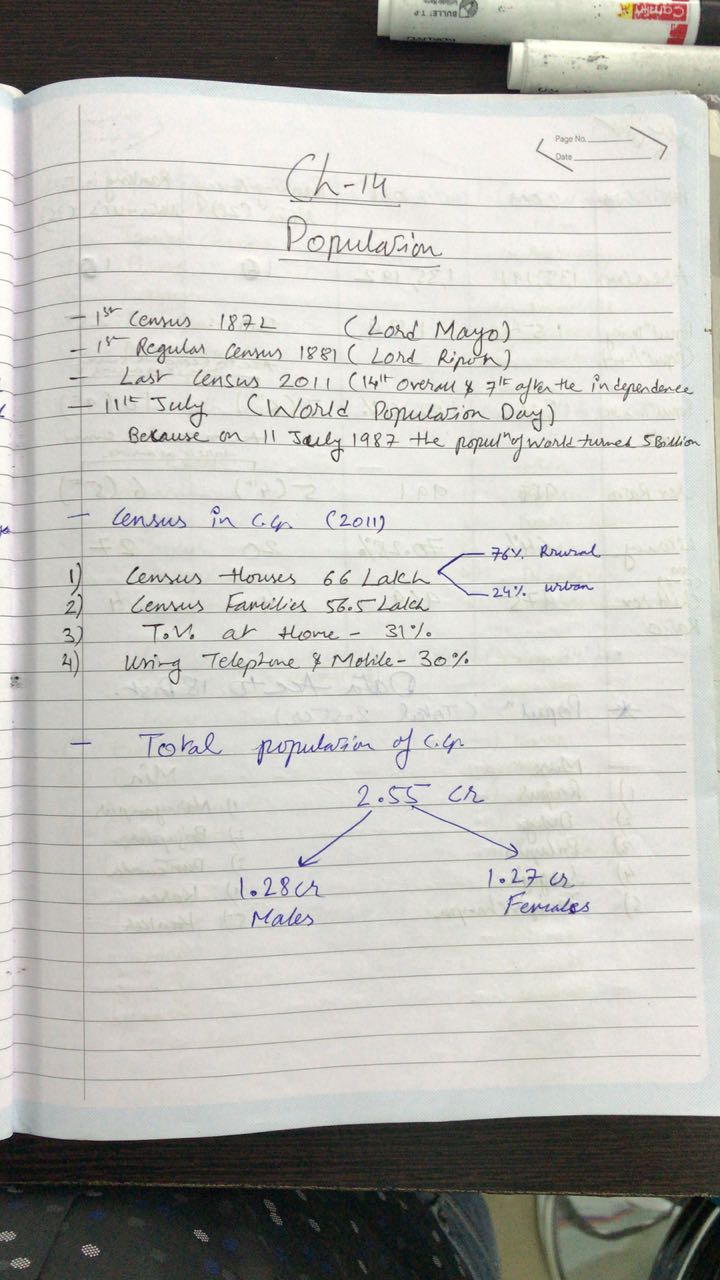 Page No.
Date
Ch-14
Population
- 1st Census 1872 (Lord Mayo)
- 1st Regular Census 1881 (Lord Ripon)
- Last Census 2011 (14th overall & 7th after the independence
- 11th July (World Population Day)
Because on 11 July 1987 the populn of world turned 5 Billion
- Census in C.G. (2011)
1) Census Houses 66 Lakh
76% Rrural
24% urban
2) Census Families 56.5 Lakh
3) T.V. at Home - 31%
4) Using Telephone & Mobile - 30%
- Total population of C.G.
2.55 cr
1.28 cr
Males
1.27 cr
Females